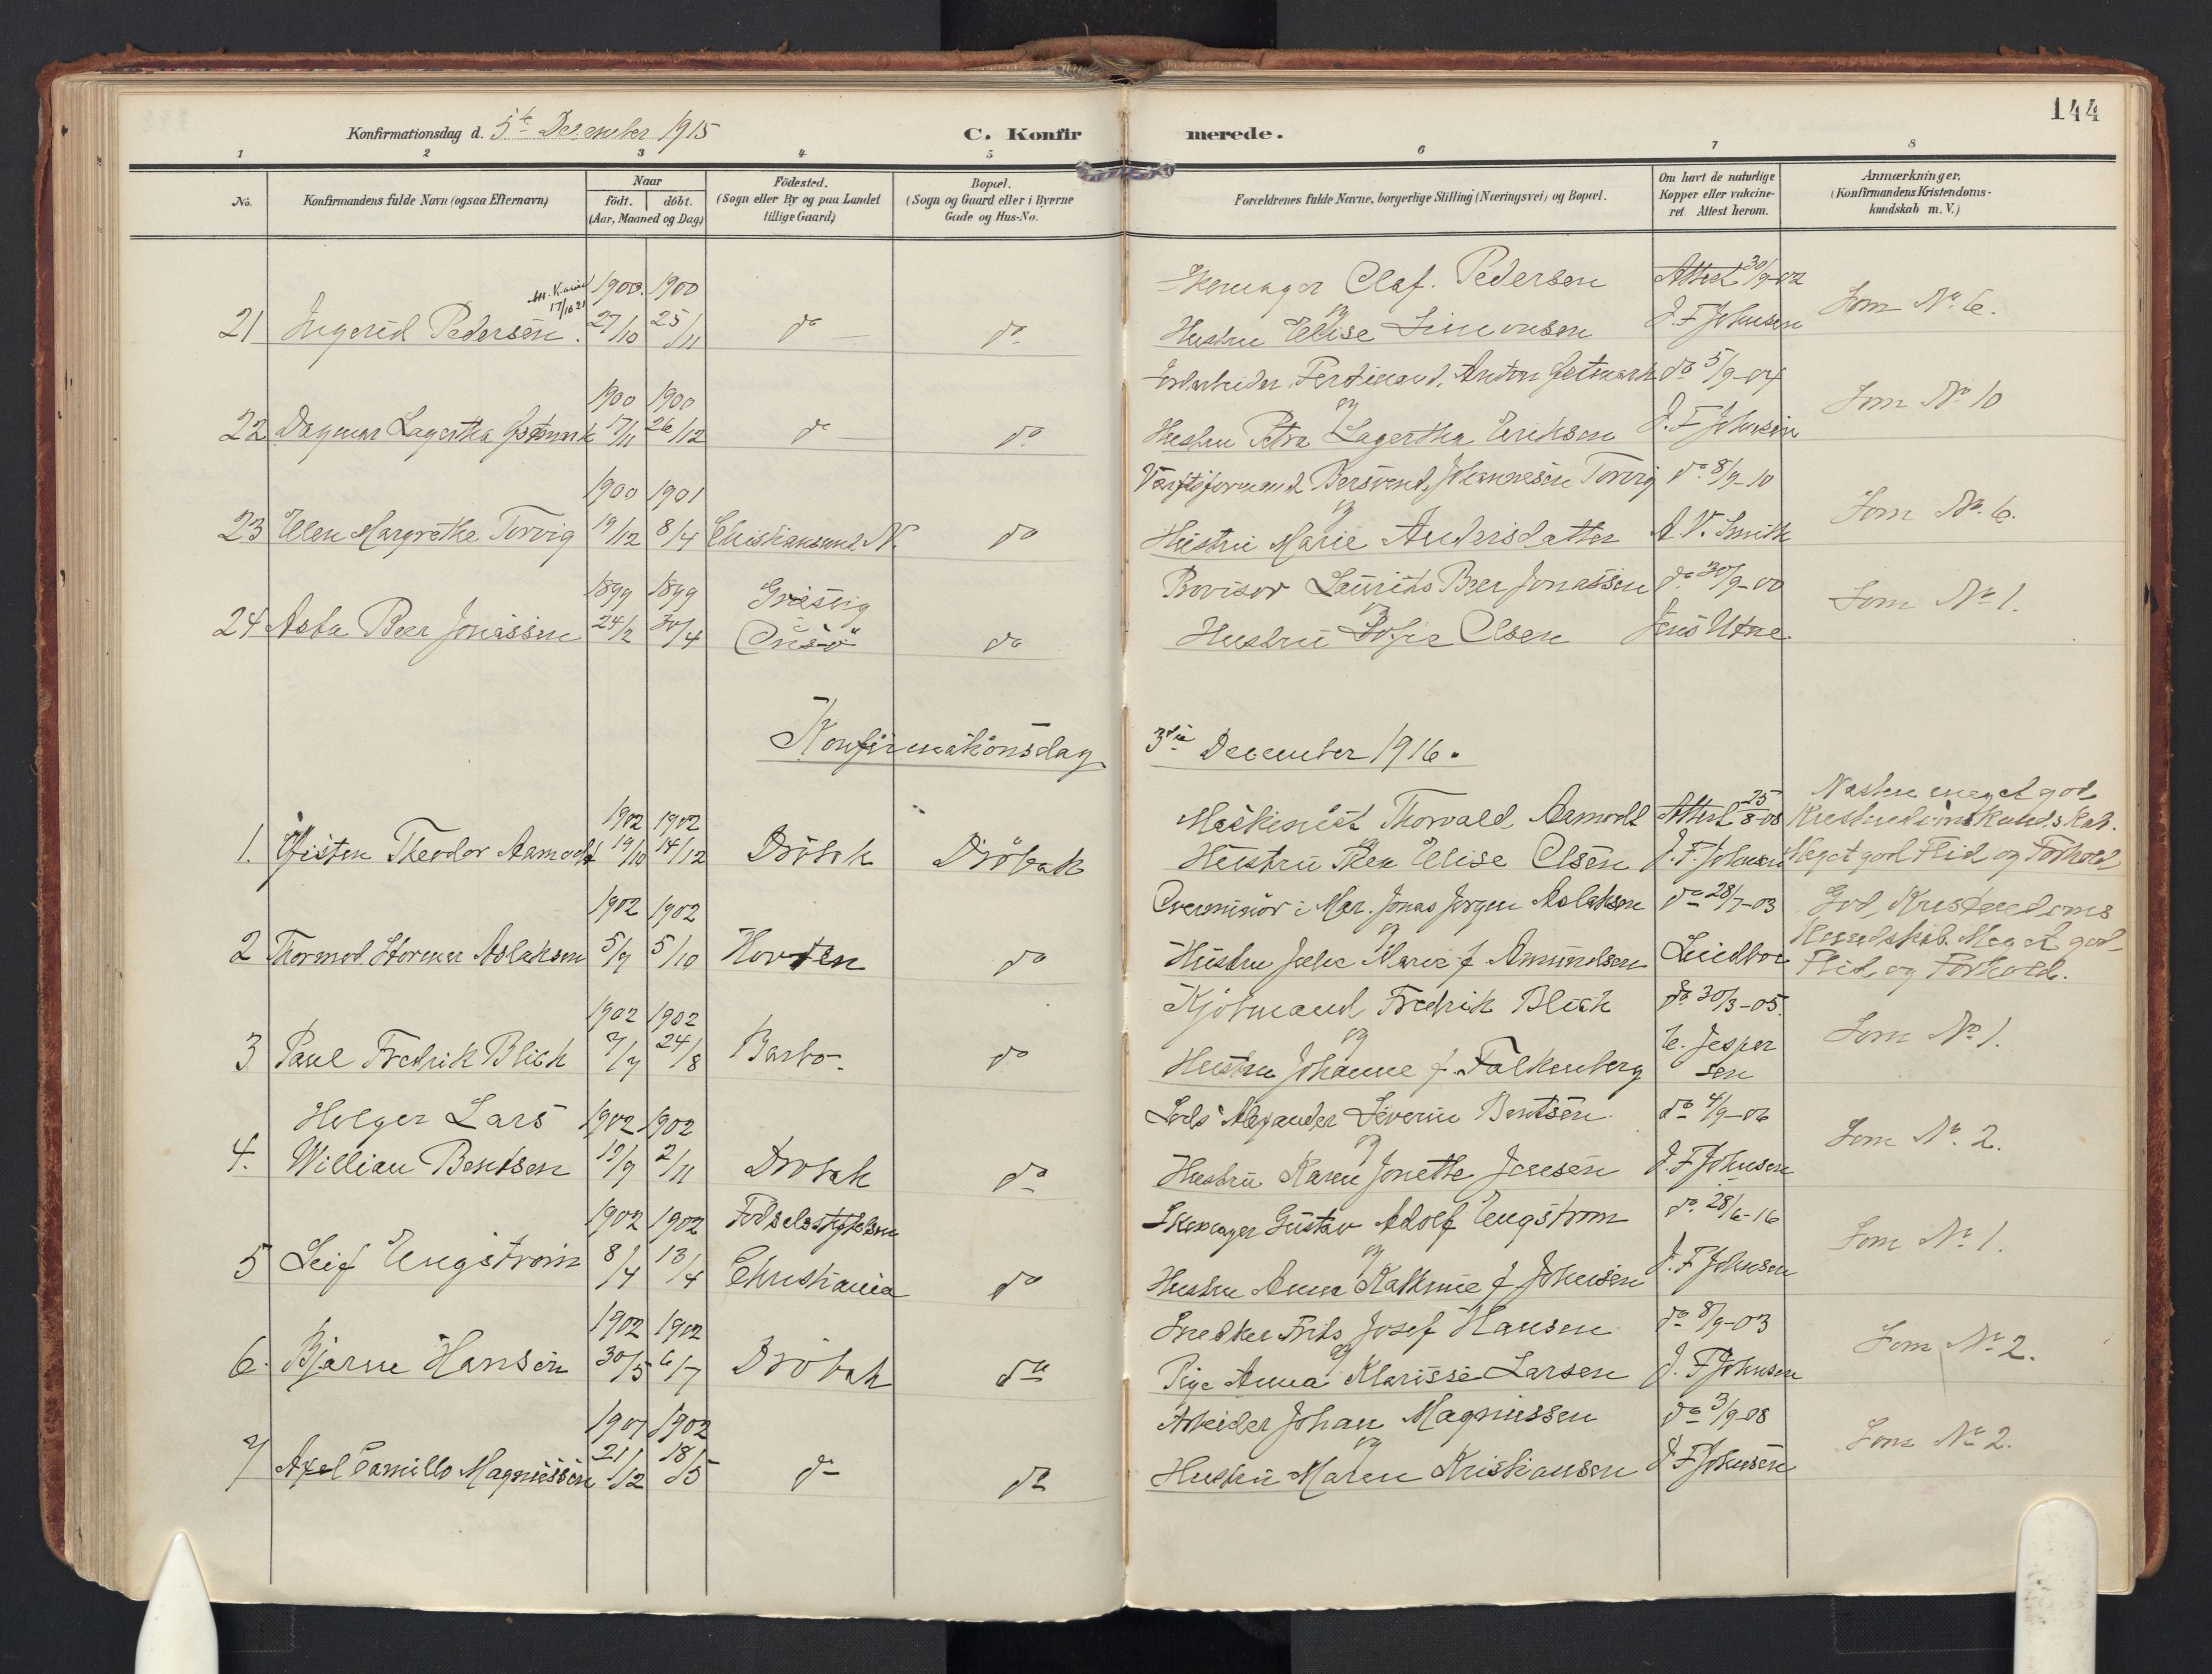 144
Konfirmationsdag d. 5te December 1915 C. Konfirmerede.
1 2 3 4 5 6 7 8
No. Konfirmandens fulde Navn (ogsaa Efternavn) Naar født. døbt. (Aar, Maaned og Dag) Födested. (Sogn eller By og paa Landet tillige Gaard) Bopæl. (Sogn og Gaard eller i Byerne Gade og Hus-No. Forældrenes fulde Navne, borgerlige Stilling (Næringsvei) og Bopæl. Om havt de naturlige Kopper eller vakcineret. Attest herom. Anmærkninger. (Konfirmandens Kristendomskundskab m. V.)
17/10 21 1900 1900 Skomager Olaf. Pedersen Attest 30/9-02
21 Ingerid Pedersen. 27/10 25/11 do do og Hustru Elise Simonsen J. F Johnsen Som No. 6.
1900 1900 Ferdinand. Anton do 5/9-04
22 Dagmar Lagertha 17/11 26/12 do do og Hustru Petra Lagertha Eriksen J. F Johnsen Som No 10
1900 1901 Værftsformand Bersvend Johannesen Torvig do 8/9-10
23 Ellen Margrethe Torvig 19/12 8/4 Christiansund. N. do og Hustru Marie Andersdatter A. V. Smith Som No. 6.
1899 1899 Laurits Beer Jonassen do 30/9-00
24 Asta Beer Jonassen 24/2 30/4 Onsö do og Hustru Sofie Olsen Jens Utne. Som No 1.
Konfirmationsdag 3die December 1916.
1902 1902 Maskinist Thorvald Aamodt Attest 25/8-08 Næsten meget god Kristendomskundskab.
1. Øisten Theodor Aamodt 19/10 14/12 Dröbak Dröbak Hustru Thea Elise Olsen J. F. Johnsen Meget god Flid og Forhold
1902 1902 Overminör i Mar. Jonas Jörgen Aslaksen do 28/7-03 God Kristendoms
2 Thormod Stormer Aslaksen 5/9 5/10 Horten do og Hustru Marie f. Amundsen Kundskab. Meget god Flid og Forhold.
1902 1902 Kjöbmand Fredrik Blich do 30/3-05.
3 Paul Fredrik Blich 7/7 24/8 Barbo do og Hustru Johanne f. Falkenberg E. Jespersen Som No 1.
Holger Lars 1902 1902 Lods Alexander Severin Bentsen do 4/9-06
4. William Bentsen 19/9 2/11 Dröbak do og Hustru Karen Jonette Jensen J. F Johnsen Som No. 2.
1902 1902 Födselsstiftelsen Skomager Gustav Adolf Engström do 28/6-16
5 Leif Engström 8/4 13/4 Christiania do og Hustru Anna Kathrine f Johnsen J. F Johnsen Som No 1.
1902 1902 Snedker Frits Josef Hansen do 8/9-03
6. Bjarne Hansen 30/5 6/7 Dröbak do og Pige Anna Klarisse Larsen J. F Johnsen Som No 2.
1901 1902 Arbeider Johan Magnussen do 3/9-08
7 Axel Camillo Magnussen 21/12 18/5 do do og Hustru Maren Kristiansen J F Johnsen Som No 2.